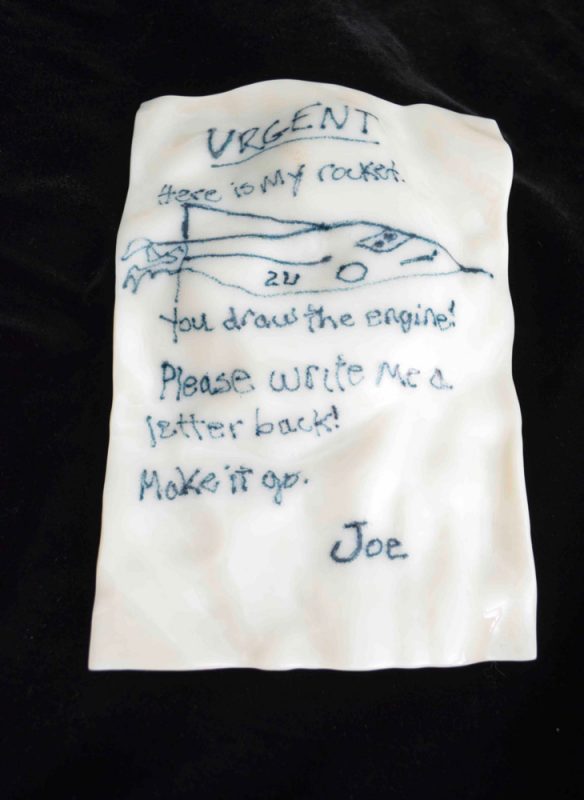 URGENT
Here is My rocket.
2U
You draw the engine!
Please write Me a
letter back!
Make it go.
Joe